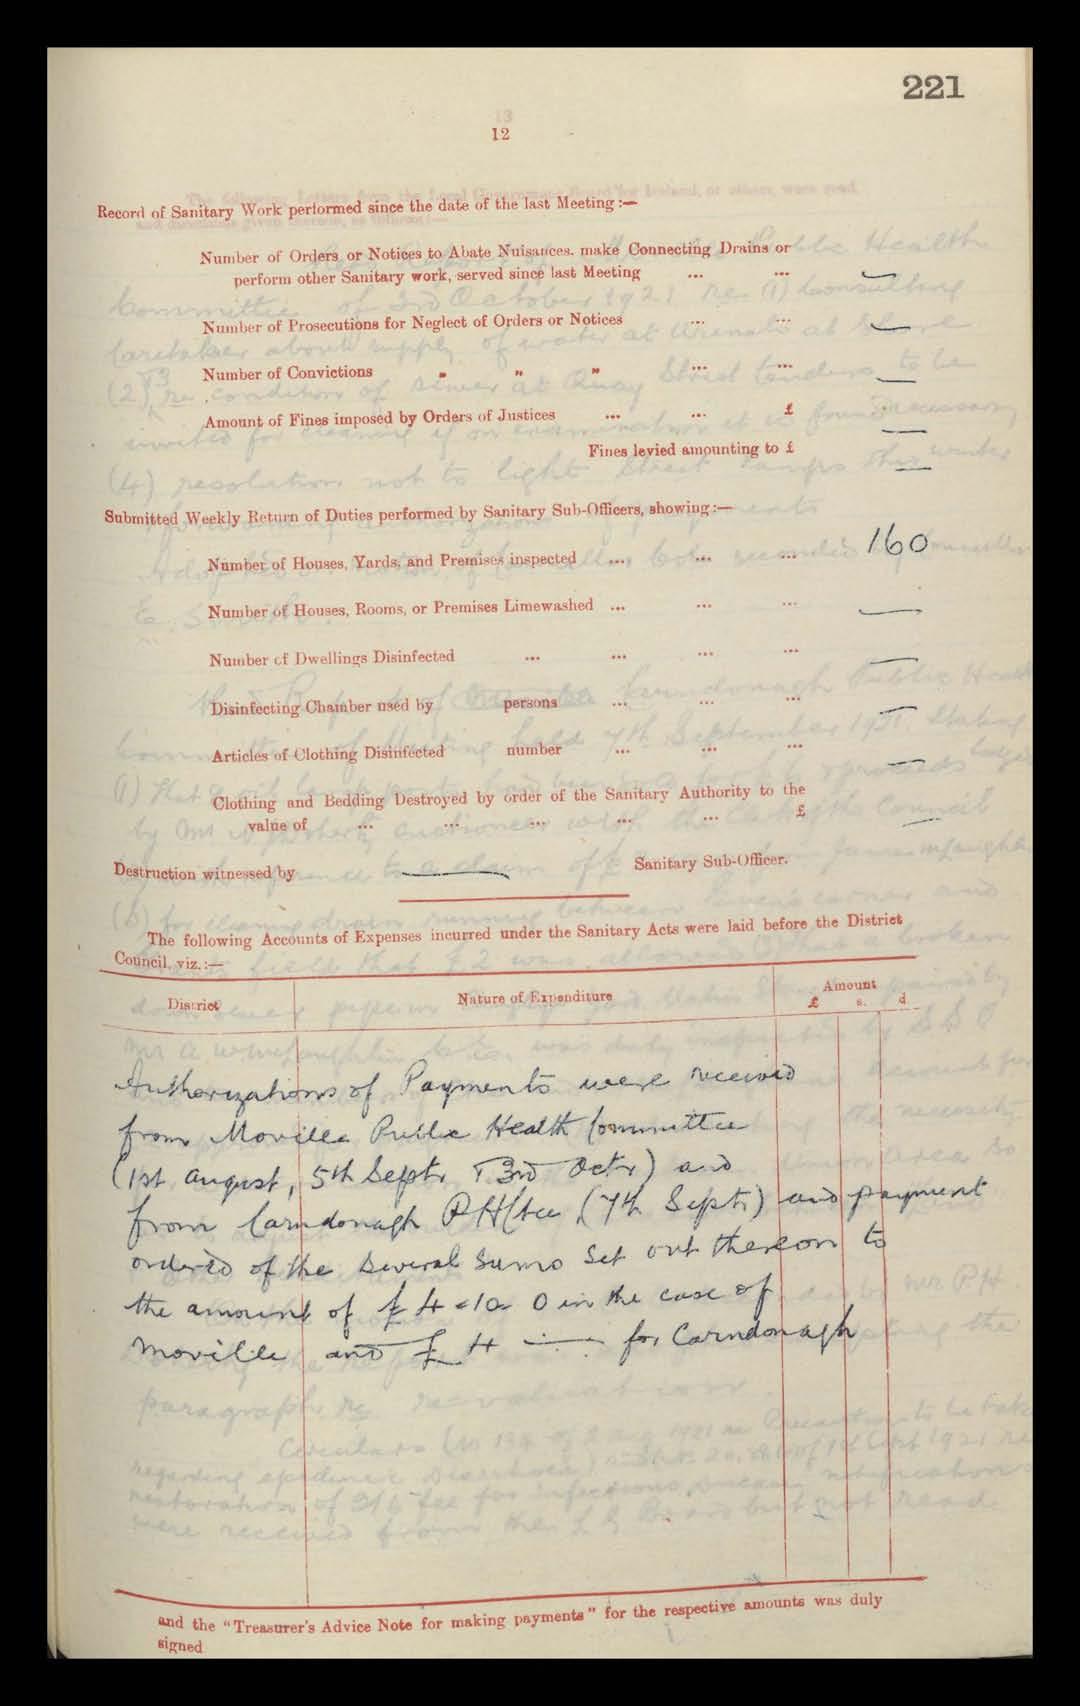 221
12
Record of Sanitary Work performed since the date of the last Meeting :—
Number of Orders or Notices to Abate Nuisances. make Connecting Drains or
perform other Sanitary work, served since last Meeting ... ... —
Number of Prosecutions for Neglect of Orders or Notices ... ... —
Number of Convictions „ „ „ ... ... —
Amount of Fines imposed by Orders of Justices ... ... £ —
Fines levied amounting to £ —
Submitted Weekly Return of Duties performed by Sanitary Sub-Officers, showing :—
Number of Houses, Yards, and Premises inspected ... ... ... 160
Number of Houses, Rooms, or Premises Limewashed ... ... ... —
Number of Dwellings Disinfected ... ... ... ... —
Disinfecting Chamber used by persons ... ... ... —
Articles of Clothing Disinfected number ... ... ... —
Clothing and Bedding Destroyed by order of the Sanitary Authority to the
value of ... ... ... ... ... £ —
Destruction witnessed by — Sanitary Sub-Officer.
The following Accounts of Expenses incurred under the Sanitary Acts were laid before the District
Council, viz. :—
District Nature of Expenditure Amount
£ s. d
Authorizations of Payments were received
from Moville Public Health Committee
(1st August, 5th Septr, & 3rd Octr) and
from Carndonagh PHCtee (7th Septr) and payment
ordered of the several sums set out thereon to
the amount of £4-10-0 in the case of
Moville and £4 — for Carndonagh
and the "Treasurer's Advice Note for making payments" for the respective amounts was duly
signed